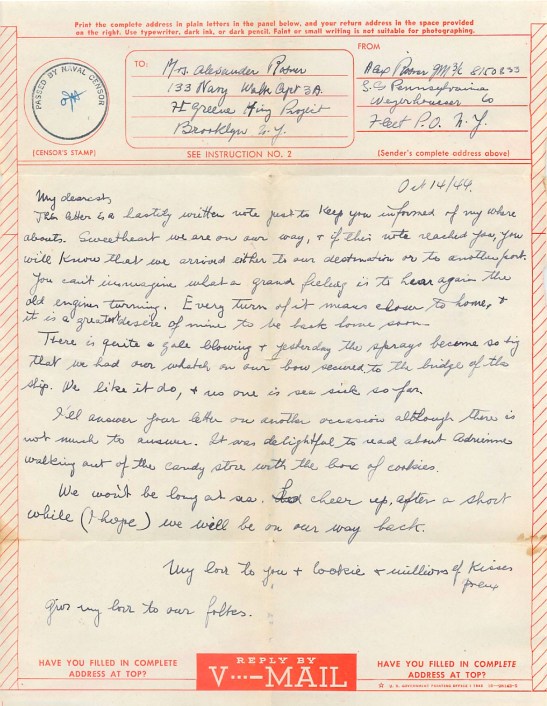 Print the complete address in plain letters in the panel below, and your return address in the space provided
on the right. Use typewriter, dark ink, or dark pencil. Faint or small writing is not suitable for photographing.
PASSED BY NAVAL CENSOR
(CENSOR'S STAMP)
TO:
Mrs. Alexander Rosner
133 Navy Walk Apt 3A.
Ft Greene Hsing Project
Brooklyn N.Y.
SEE INSTRUCTION NO. 2
FROM
Alex Rosner GM 3/c 8150233
S.S Pennsylvania
Weyerhouser Co
Fleet P.O. N.Y.
(Sender's complete address above)
Oct 14/44.
My dearest,
This letter is a hastily written note just to keep you informed of my where
abouts. Sweetheart we are on our way, + if this note reached you, you
will know that we arrived either to our destination or to another port.
You can't immagine what a grand feeling is to hear again the
old engines turning. Every turn of it means closer to home, +
it is a great desire of mine to be back home soon.
There is quite a gale blowing + yesterday the sprays became so big
that we had our watch, on our bow secured to the bridge of the
ship. We like it do, + no one is sea sick so far.
I'll answer your letter on another occasion although there is
not much to answer. It was delightful to read about Adrienne
walking out of the candy store with the box of cookies.
We won't be long at sea. cheer up, after a short
while (I hope) we will be on our way back.
My love to you + Cookie + millions of Kisses
Give my love to our folkes.
HAVE YOU FILLED IN COMPLETE
ADDRESS AT TOP?
REPLY BY
V···—MAIL
HAVE YOU FILLED IN COMPLETE
ADDRESS AT TOP?